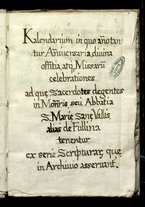 Kalendarium in quo anotan
tur Anniversaria divina
offitia atq; Missarũ
celebrationes
ad que Sacerdotes degentes
in Monrio seu Abbatia
S. Marie Sane Vallis
alias de Fullina
tenentur
ex serie Scripturar, que
in Archivio asservant.